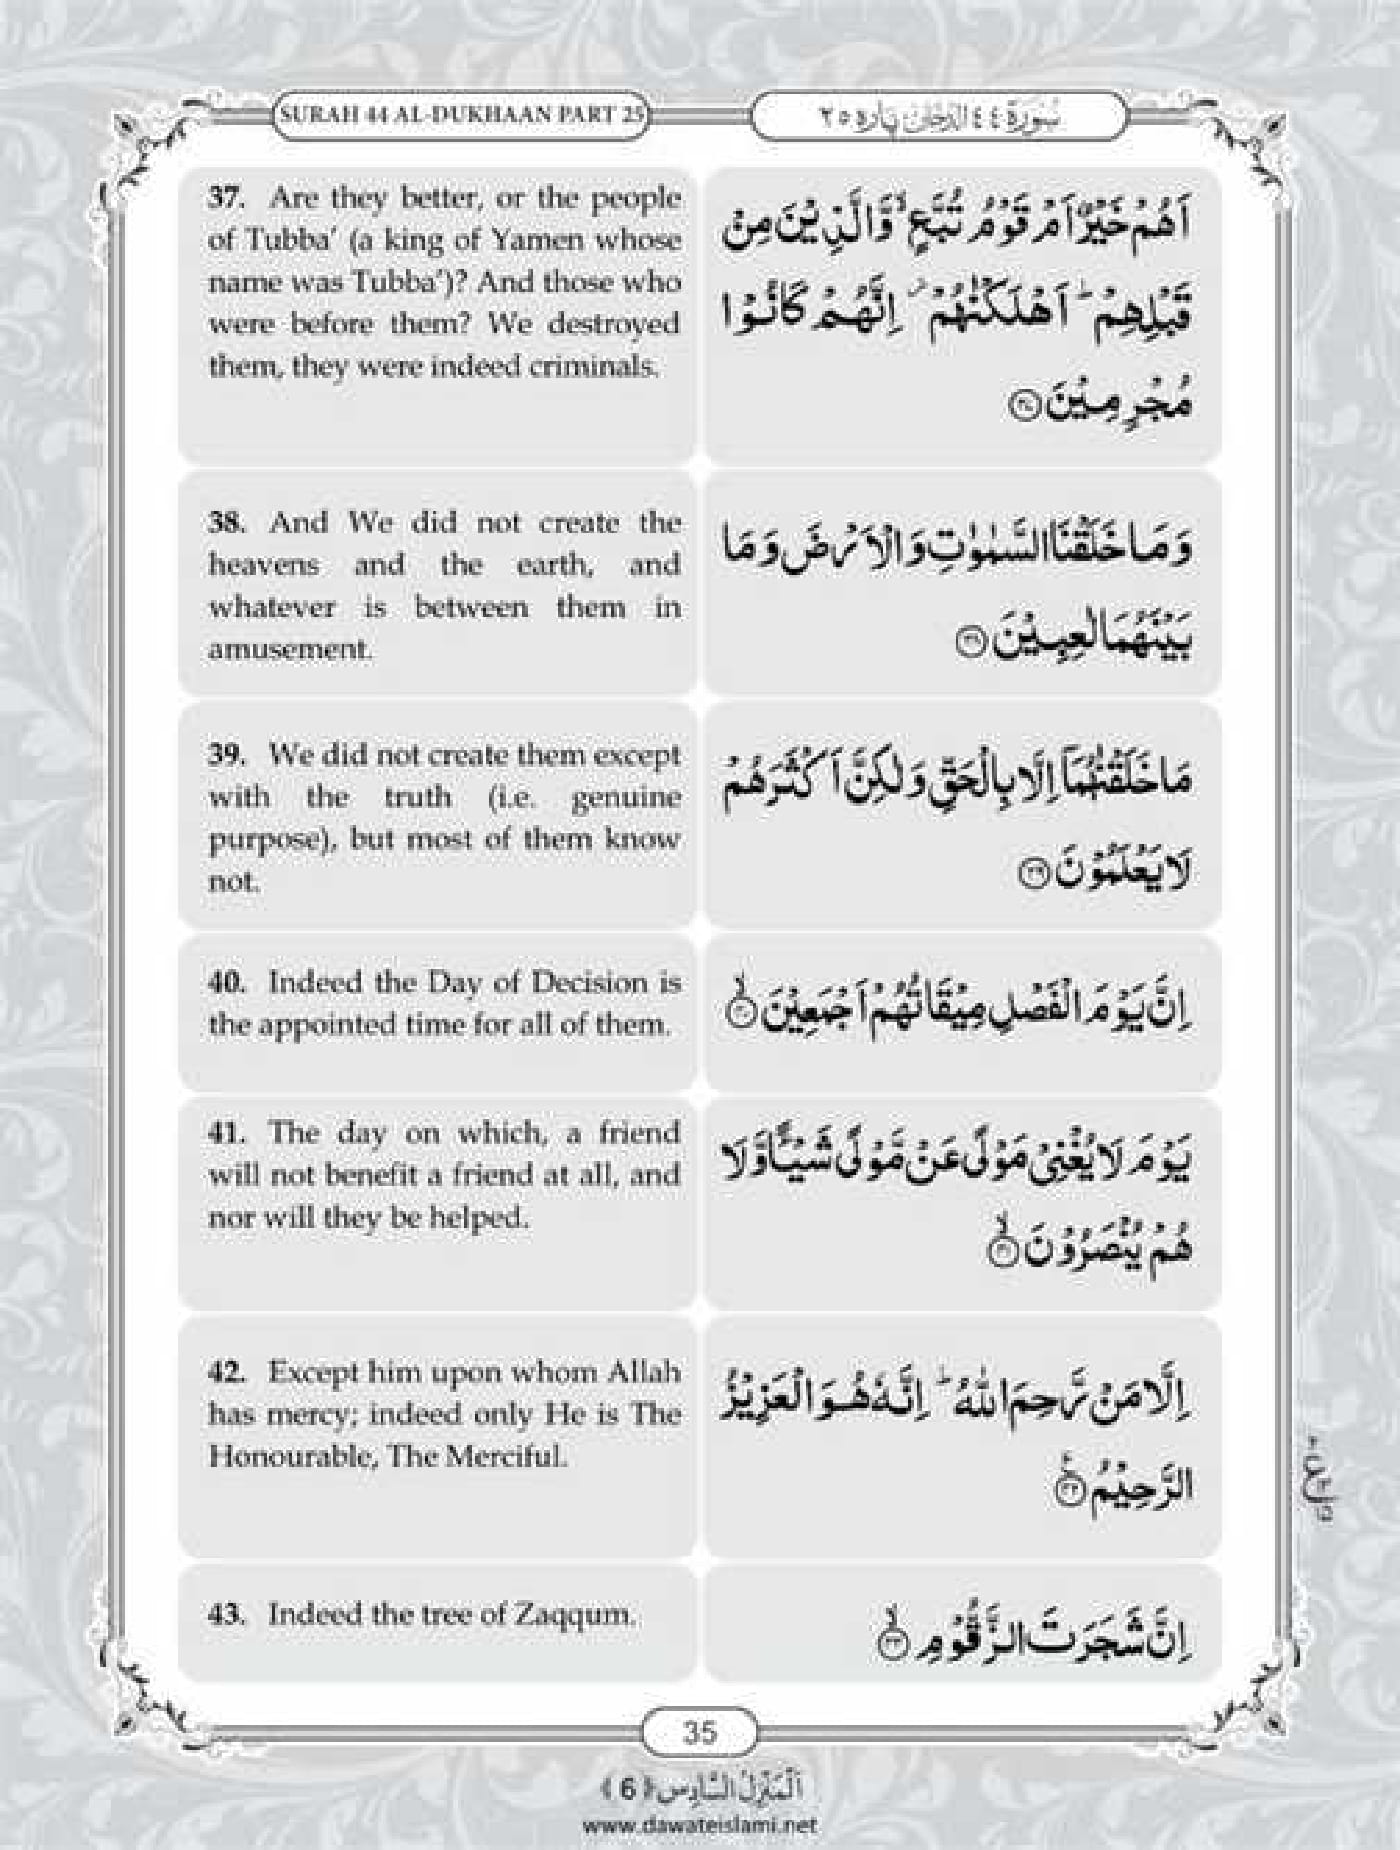 SURAH 44 AL-DUKHAAN PART 25
سُوْرَۃ ٤٤ الدُّخَان پارہ ٢٥
37. Are they better, or the people
of Tubba’ (a king of Yamen whose
name was Tubba’)? And those who
were before them? We destroyed
them, they were indeed criminals.
اَهُمْ خَیْرٌ اَمْ قَوْمُ تُبَّعٍ ۙ وَّ الَّذِیْنَ مِنْ
قَبْلِهِمْ ؕ اَهْلَكْنٰهُمْ ۫ اِنَّهُمْ كَانُوْا
مُجْرِمِیْنَ ﴿۳۷﴾
38. And We did not create the
heavens and the earth, and
whatever is between them in
amusement.
وَ مَا خَلَقْنَا السَّمٰوٰتِ وَ الْاَرْضَ وَ مَا
بَیْنَهُمَا لٰعِبِیْنَ ﴿۳۸﴾
39. We did not create them except
with the truth (i.e. genuine
purpose), but most of them know
not.
مَا خَلَقْنٰهُمَاۤ اِلَّا بِالْحَقِّ وَ لٰكِنَّ اَكْثَرَهُمْ
لَا یَعْلَمُوْنَ ﴿۳۹﴾
40. Indeed the Day of Decision is
the appointed time for all of them.
اِنَّ یَوْمَ الْفَصْلِ مِیْقَاتُهُمْ اَجْمَعِیْنَ ﴿ۙ۴۰﴾
41. The day on which, a friend
will not benefit a friend at all, and
nor will they be helped.
یَوْمَ لَا یُغْنِیْ مَوْلًى عَنْ مَّوْلًى شَیْـًٔا وَّ لَا
هُمْ یُنْصَرُوْنَ ﴿ۙ۴۱﴾
42. Except him upon whom Allah
has mercy; indeed only He is The
Honourable, The Merciful.
اِلَّا مَنْ رَّحِمَ اللّٰهُ ؕ اِنَّهٗ هُوَ الْعَزِیْزُ
الرَّحِیْمُ ﴿۴۲﴾
43. Indeed the tree of Zaqqum.
اِنَّ شَجَرَتَ الزَّقُّوْمِ ﴿ۙ۴۳﴾
35
اَلْمَنْزِلُ السَّادِس ﴿6﴾
www.dawateislami.net